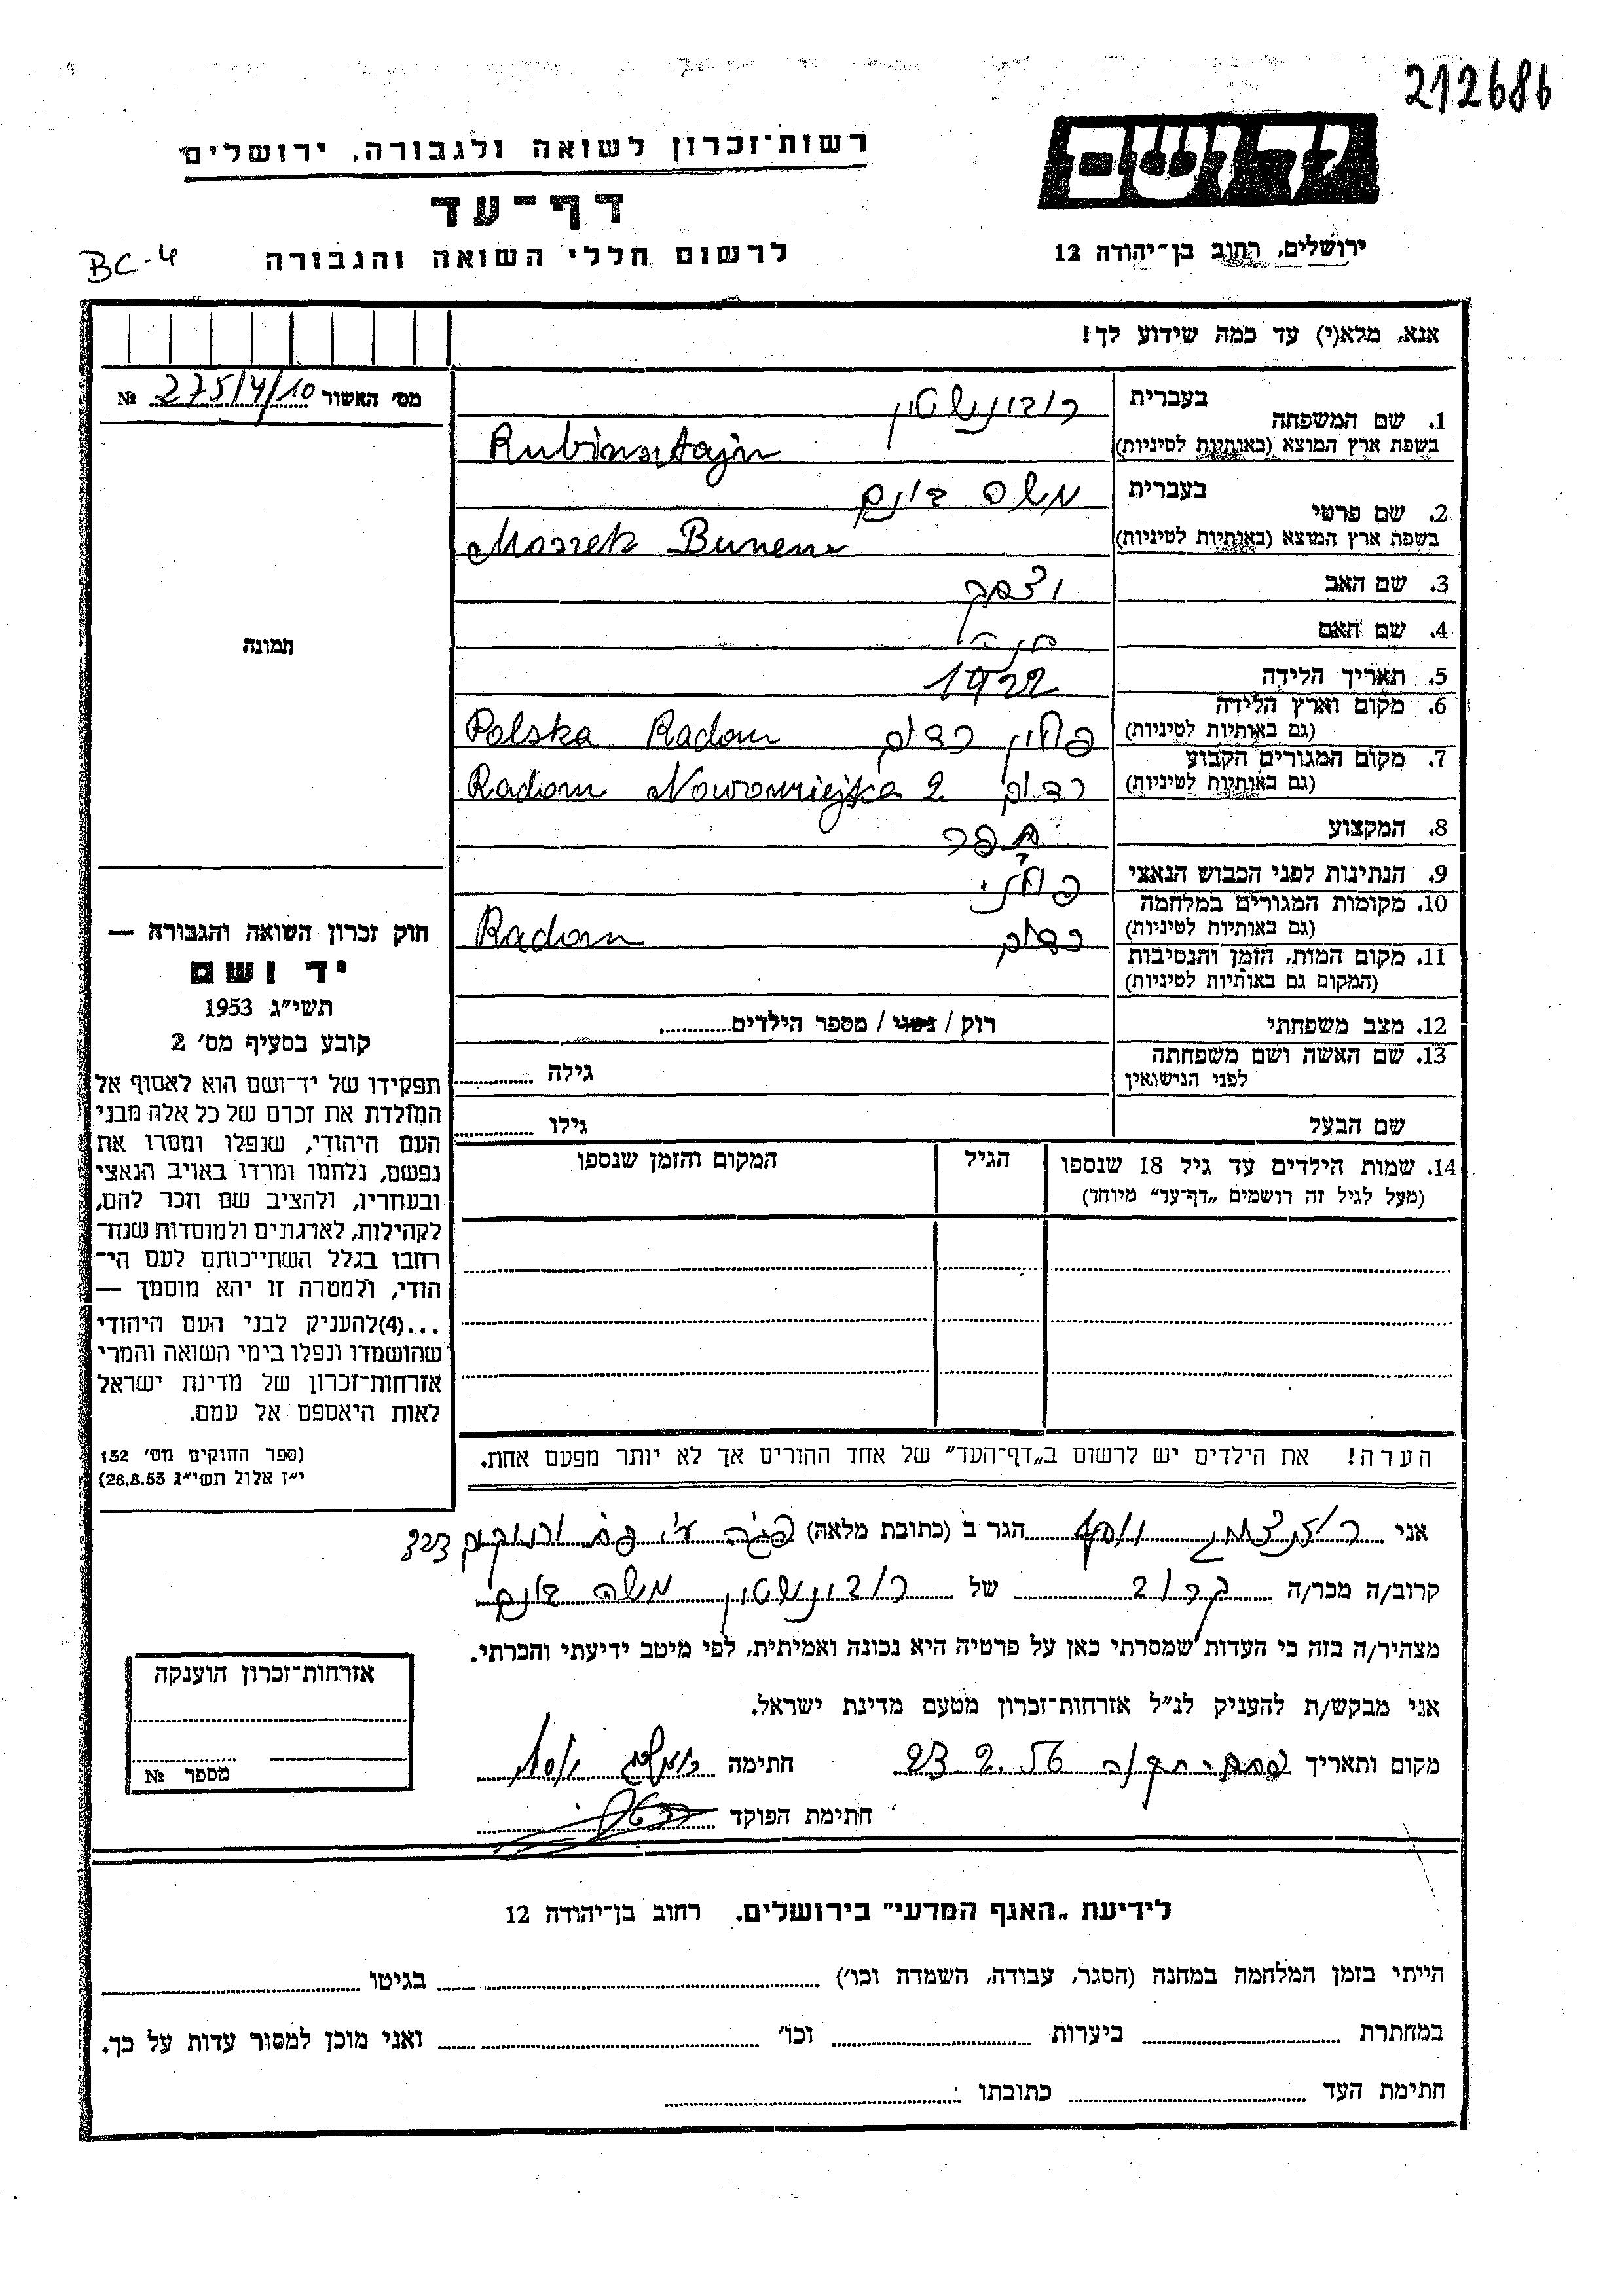 212686
יד ושם
רשות־זכרון לשואה ולגבורה, ירושלים
דף־עד
לרשום חללי השואה והגבורה
BC-4
ירושלים, רחוב בן־יהודה 12
אנא, מלא(י) עד כמה שידוע לך!
מס׳ האשור 275/4/10 №
תמונה
1. שם המשפחה
בעברית רובינשטין
בשפת ארץ המוצא (באותיות לטיניות) Rubinsztajn
2. שם פרטי
בעברית משה בונם
בשפת ארץ המוצא (באותיות לטיניות) Moszek Bunem
3. שם האב יצחק
4. שם האם חנה
5. תאריך הלידה 1922
6. מקום וארץ הלידה
(גם באותיות לטיניות) פולין רדום Polska Radom
7. מקום המגורים הקבוע
(גם באותיות לטיניות) רדום Radom Nowomiejska 2
8. המקצוע תפר
9. הנתינות לפני הכבוש הנאצי פולני
10. מקומות המגורים במלחמה
(גם באותיות לטיניות) רדום Radom
11. מקום המות, הזמן והנסיבות
(המקום גם באותיות לטיניות)
12. מצב משפחתי רוק / נשוי / מספר הילדים
13. שם האשה ושם משפחתה
לפני הנישואין גילה
שם הבעל גילו
14. שמות הילדים עד גיל 18 שנספו הגיל המקום והזמן שנספו
(מעל לגיל זה רושמים „דף־עד” מיוחד)
חוק זכרון השואה והגבורה —
יד ושם
תשי״ג 1953
קובע בסעיף מס׳ 2
תפקידו של יד־ושם הוא לאסוף אל
המולדת את זכרם של כל אלה מבני
העם היהודי, שנפלו ומסרו את
נפשם, נלחמו ומרדו באויב הנאצי
ובעוזריו, ולהציב שם וזכר להם,
לקהילות, לארגונים ולמוסדות שנח־
רבו בגלל השתייכותם לעם הי־
הודי, ולמטרה זו יהא מוסמך —
...(4) להעניק לבני העם היהודי
שהושמדו ונפלו בימי השואה והמרי
אזרחות־זכרון של מדינת ישראל
לאות היאספם אל עמם.
(ספר החוקים מס׳ 132
י״ז אלול תשי״ג 28.8.53)
הערה! את הילדים יש לרשום ב„דף־העד” של אחד ההורים אך לא יותר מפעם אחת.
אני יוסף הגר ב (כתובת מלאה) 323
קרוב/ה מכר/ה קרוב של רובינשטין משה בונם
מצהיר/ה בזה כי העדות שמסרתי כאן על פרטיה היא נכונה ואמיתית, לפי מיטב ידיעתי והכרתי.
אני מבקש/ת להעניק לנ״ל אזרחות־זכרון מטעם מדינת ישראל.
מקום ותאריך פתח־תקוה 23.2.56 חתימה
חתימת הפוקד
אזרחות־זכרון הוענקה
מספר №
לידיעת „האגף המדעי” בירושלים. רחוב בן־יהודה 12
הייתי בזמן המלחמה במחנה (הסגר, עבודה, השמדה וכו׳) בגיטו
במחתרת ביערות וכו׳ ואני מוכן למסור עדות על כך.
חתימת העד כתובתו